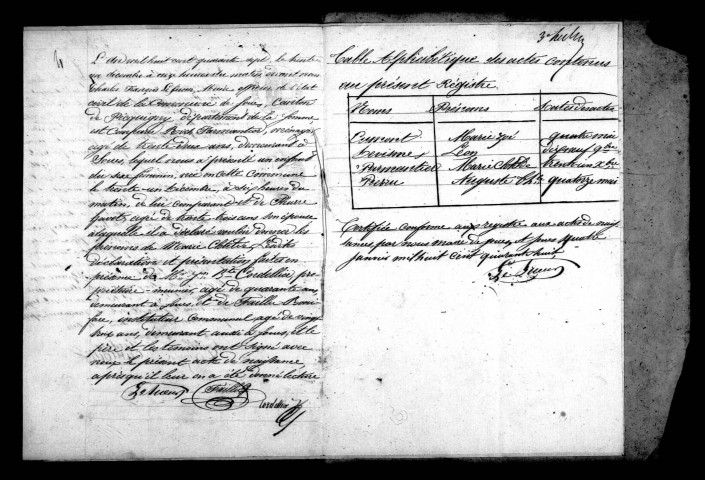 L'an mil huit cent quarante sept, le trente
un décembre à dix heures du matin devant nous
Charles François Lefeuvre, Maire officier de l'état
civil de la Commune de Joues, Canton
de Picquigny département de la Somme
est Comparu Roch Parmentier, ménager
agé de trente deux ans, demeurant à
Joues, lequel nous a présenté un enfant
du sexe féminin, née en cette Commune
le trente-un Décembre, à dix heures du
matin, de lui comparant et de Pierre
agée de trente trois ans son épouse
à laquelle il a déclaré vouloir donner les
prénoms de Marie Clotilde, Ladite
déclaration et présentation faites en
présence de Mr. Jn. Bte. Cordellier, pro
priétaire - meunier, agé de quarante ans,
demeurant à Joues, et de Faille Boni
face, instituteur communal agé de vingt
huit ans, demeurant aussi à Joues, et le
père et les temoins ont signé avec
nous le présent acte de naissance
après qu'il leur en a été donné lecture
Faille
Cordellier
Table Alphabétique des actes contenus
au présent Régistre.
Noms Prénoms Dates des actes
Marie quatre mai
Léon dix neuf 9bre
Parmentier Marie Clotilde trente un Xbre
Auguste quatorze mai
Certifiée conforme aux registre aux actes de nais
sances par nous maire de Joues, Joues quatre
janvier mil huit cent quarante huit